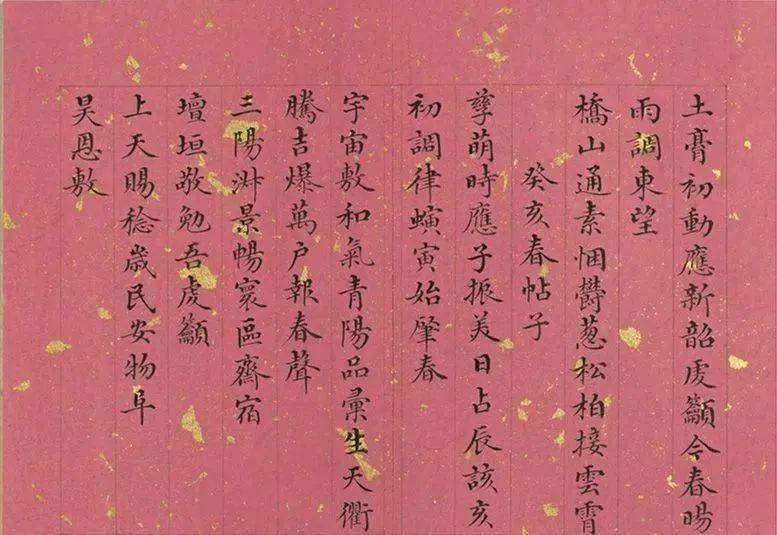 土膏初動應新韶虔籲今春暘
雨調東望
橋山通素悃鬱葱松柏接雲霄
癸亥春帖子
孳萌時應子振美日占辰該亥
初調律螾寅始肇春
宇宙敷和氣青陽品彙生天衢
騰吉爆萬戶報春聲
三陽淑景暢寰區齋宿
壇垣敬勉吾虔籲
上天賜稔歲民安物阜
昊恩敷